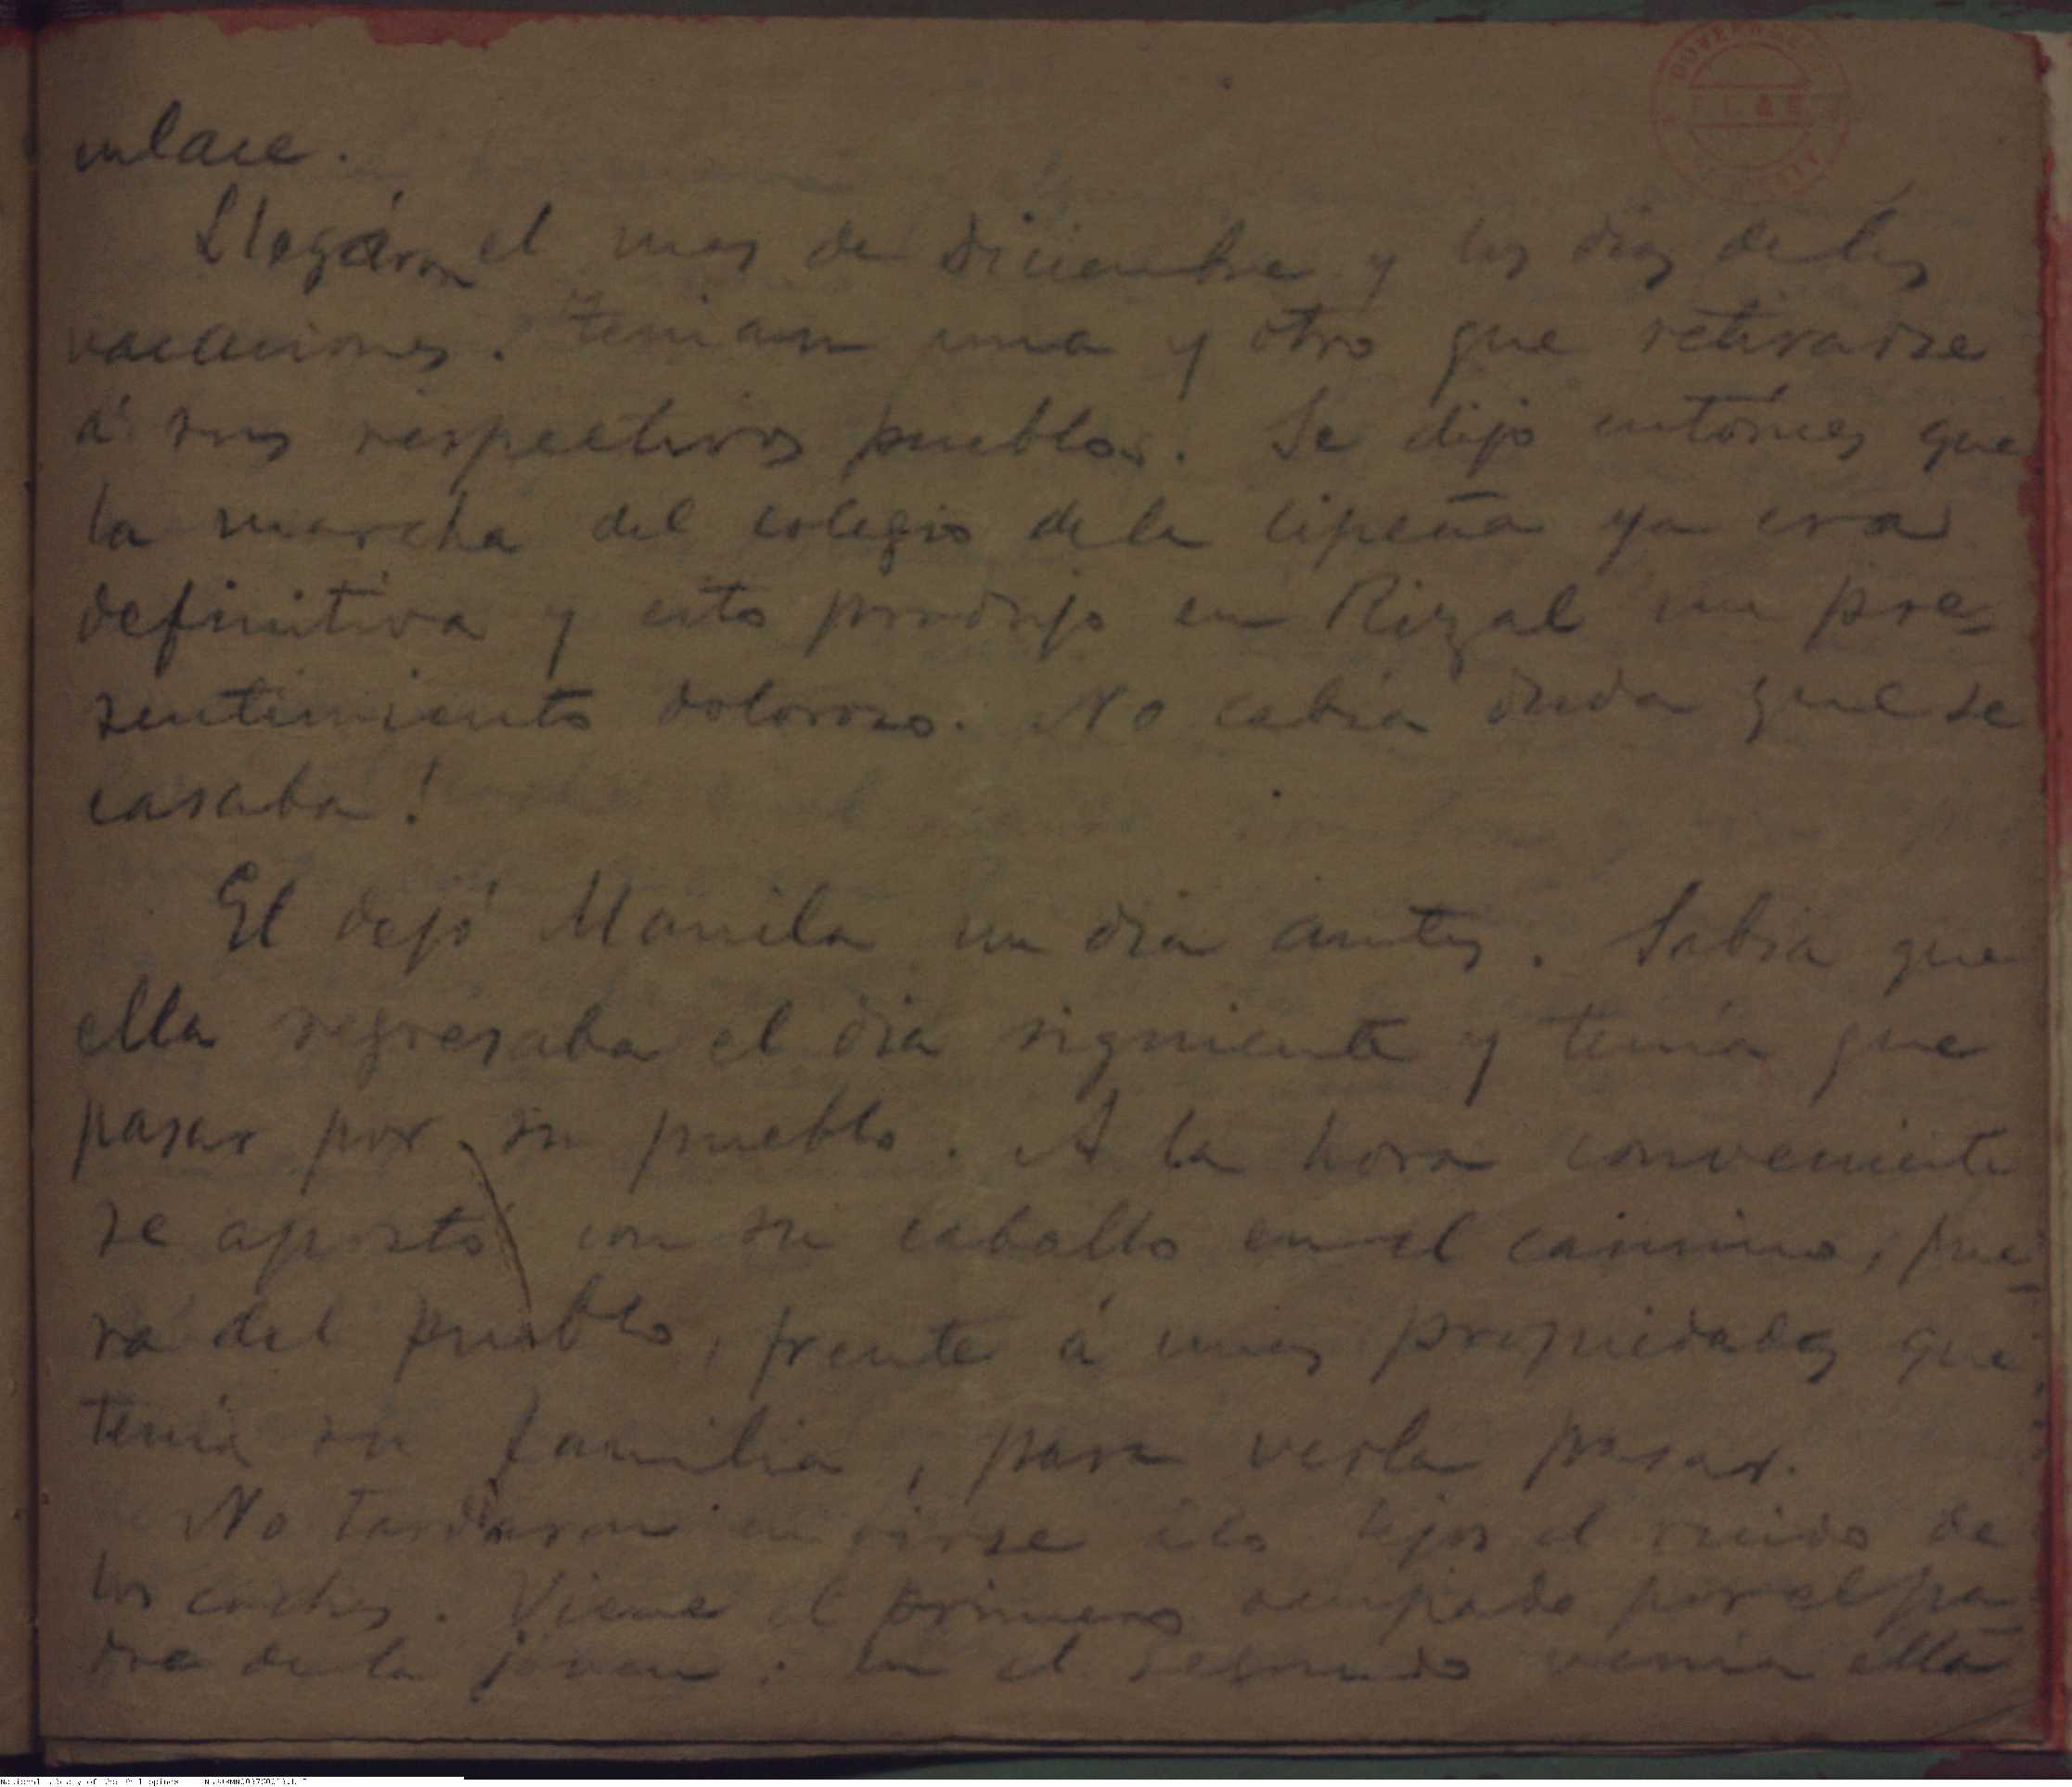 enlace.
Llegáron el mes de diciembre y los dias de las
vacaciones. tenian una y otro que retirarse
á sus respectivos pueblos. Se dijo entónces que
la marcha del colegio de la lipeña ya era
definitiva y esto produjo en Rizal un pre-
sentimiento doloroso. No cabia duda que se
casaba!
El dejó Manila un dia antes. Sabia que
ella regresaba el dia siguiente y tenia que
pasar por su pueblo. A la hora conveniente
se apostó con su caballo en el camino, fue-
ra del pueblo, frente á unas propiedades que
tenia su familia, para verla pasar.
No tardaron en oirse á lo lejos el ruido de
los coches. Viene el primero ocupado por el pa-
dre de la joven: en el segundo venia ella